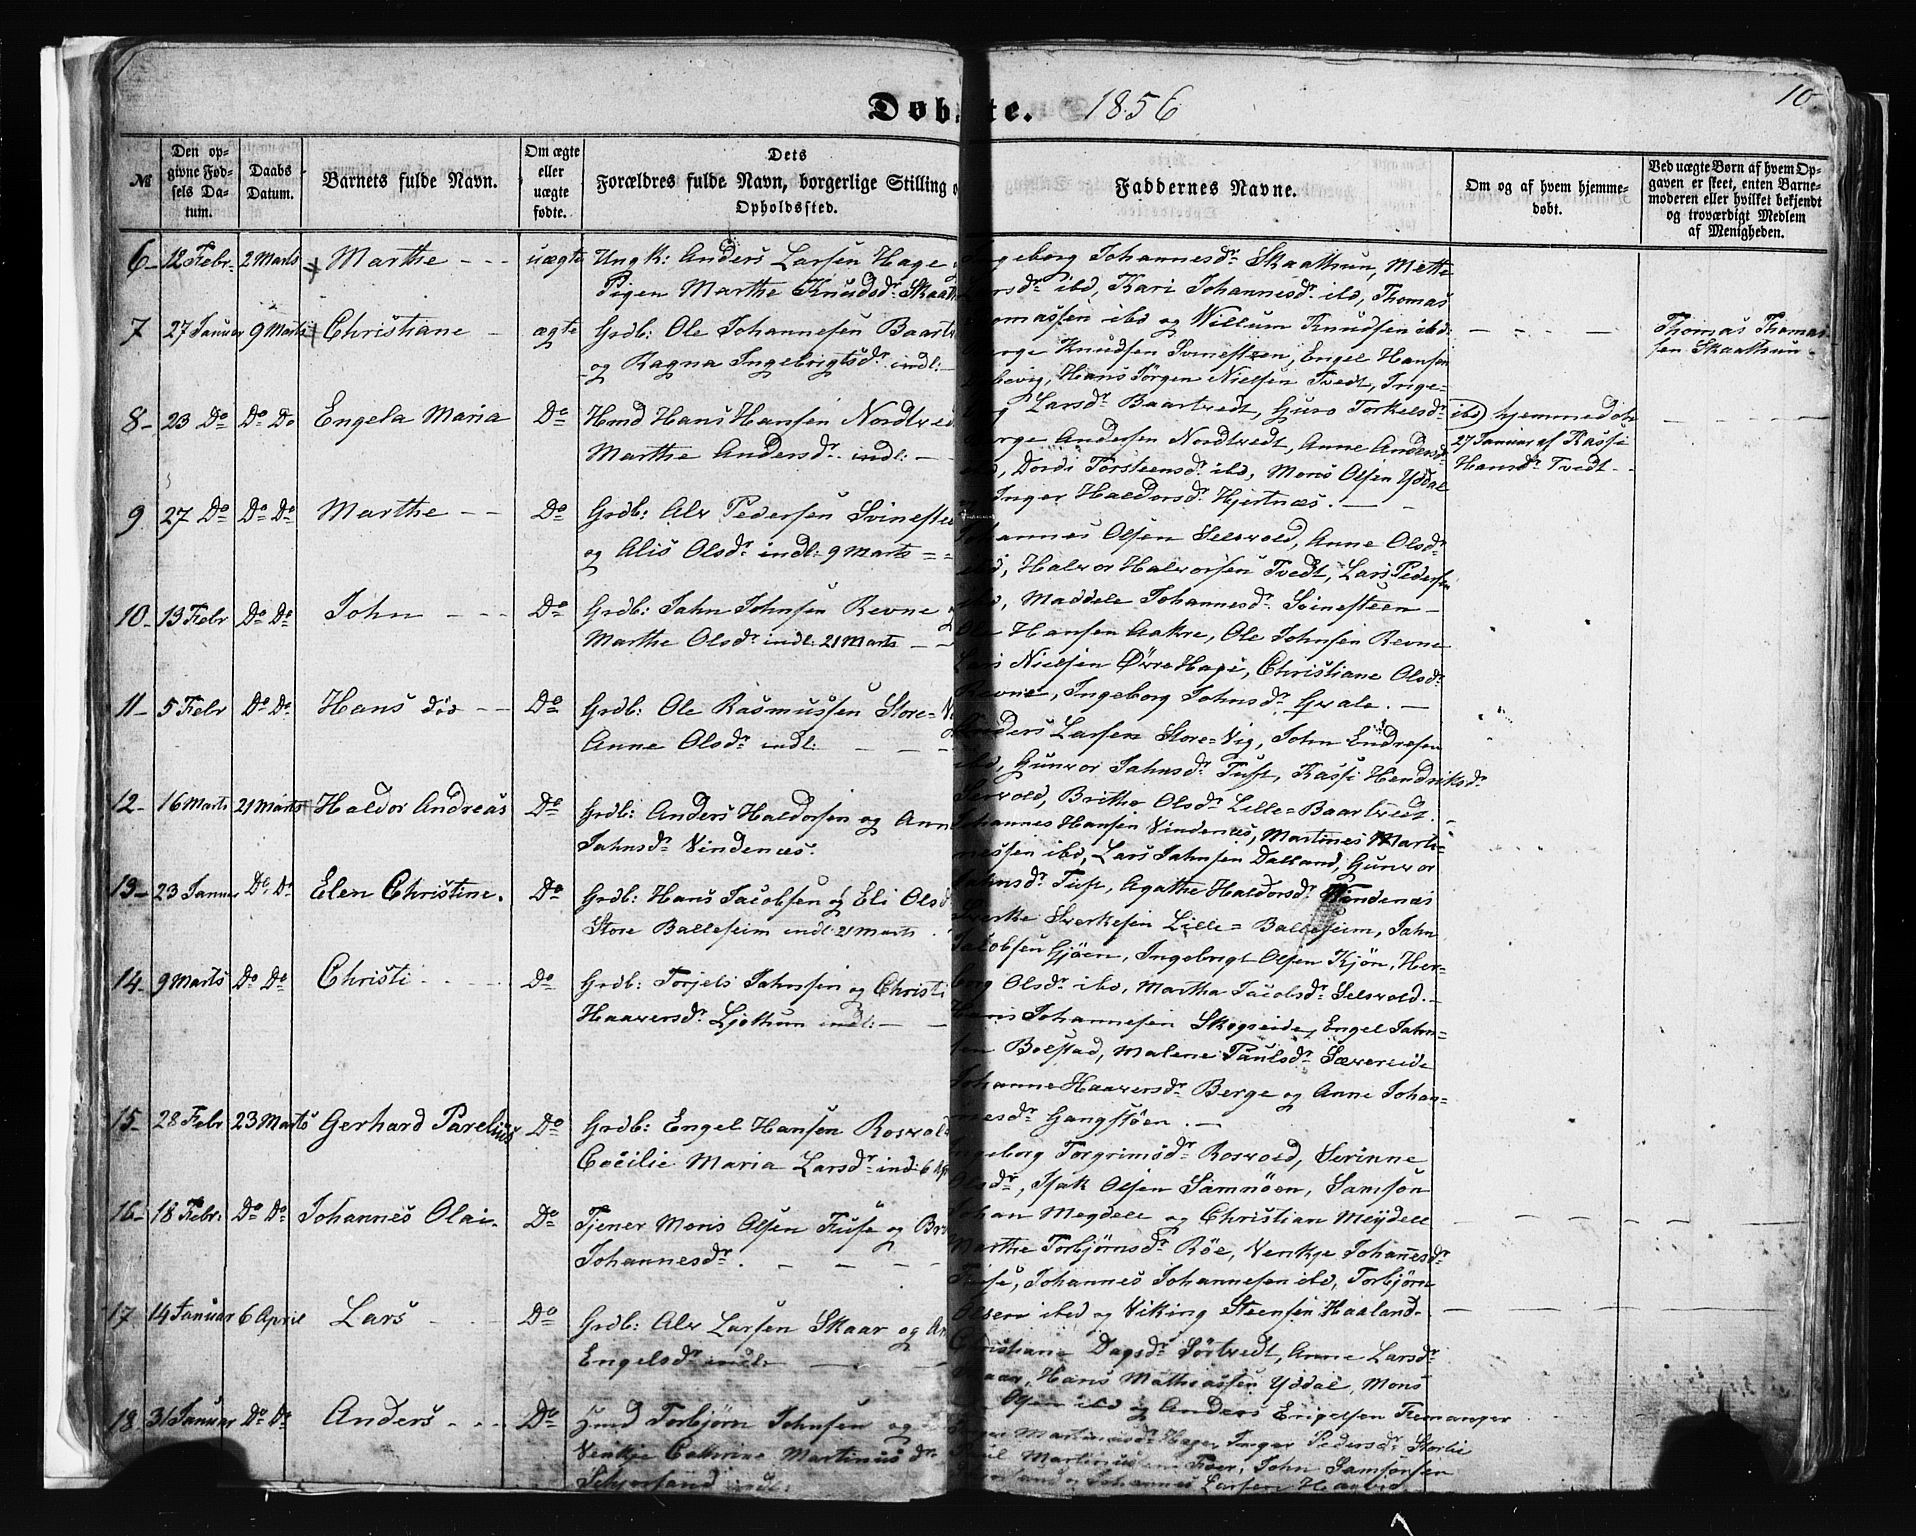 Døbte. 1856
10
№
Den opgivne Fødsels Datum.
Daabs Datum.
Barnets fulde Navn.
Om ægte eller uægte fødte.
Dets Forældres fulde Navn, borgerlige Stilling
Opholdssted.
Faddernes Navne.
Om og af hvem hjemmedøbt.
Ved uægte Børn af hvem Opgaven er skeet, enten Barnemoderen eller hvilket bekjendt og troværdigt Medlem af Menigheden.
6 12 Febr. 2 Marts Marthe uægte Ungk: Anders Larsen Hage
Pigen Marthe Knudsdr
Johannesdr Skaathun, Mette
ibd, Kari Johannesdr ibd, Thomas
ibd og Willum Knudsen ibd
Thomas Thomassen Skaathun
7 27 Januar 9 Marts Christiane ægte Grdb: Ole Johannesen
og Ragna Ingebrigtsdr indl:
Knudsen Svinesteen, Engel Hansen
Hans Jørgen Nielsen Tvedt, Inge-
Larsdr Baartvedt, Guro Torkelsdr
ibd) hjemmedøbt
27 Januar af Rassi
Hansdr Tvedt
8 23 Do Do Do Engela Maria Do Hmd Hans Hansen
Marthe Andersdr indl:
Andersen Nordtvedt, Anne Andersdr
Dordi Torsteensdr ibd, Mons Olsen Yddal
Inger Haldorsdr Hjertnæs.
9 27 Do Do Do Marthe Do Grdb: Alv Pedersen
og Alis Olsdr indl: 9 Marts
Olsen Selsvold, Anne Olsdr
Halvor Halvorsen Tvedt, Lars Pedersen
Maddele Johannesdr Svinesteen
10 13 Febr Do Do John Do Grdb: Jahn Johnsen Revne
Marthe Olsdr indl: 21 Marts
Ole Hansen Aakre, Ole Johnsen Revne
Lars Nielsen Øvre Hage, Christiane Olsdr
Revne, Ingeborg Johnsdr Qvale.
11 5 Febr Do Do Hans Do Grdb: Ole Rasmussen Store=
Anne Olsdr indl:
Anders Larsen Store=Vig, John Endresen
ibd, Gunvor Jahnsdr Tuft, Rassi Hendriksdr
Brithe Olsdr Lille=Baartvedt.
12 16 Marts 21 Marts Haldor Andreas Do Grdb: Anders Haldorsen og
Jahnsdr Vindenæs.
Johannes Hansen Vindenæs, Martines Marti-
nessen ibd, Lars Jahnsen Dalland, Gunvor
Jahnsdr Tuft, Agathe Haldorsdr Vindenæs
13 23 Januar Do Do Elen Christine. Do Grdb: Hans Jacobsen og Eli
Store Balleseim indl: 21 Marts
Sverkesen Lille=Balleseim, Jahn
Jacobsen Gjøen, Ingebrigt Olsen Kjøn, Her-
borg Olsdr ibd, Martha Jacobsdr Selsvold.
14 9 Marts Do Do Christi Do Grdb: Torjels Jahnsen og Christi
Haaversdr Ljothun indl:
Hans Johannesen Skogseide, Engel Jahn-
sen Bolstad, Malene Paulsdr Sævereide
Johanne Haaversdr Berge og Anne Johan-
nesdr Gangstøen.
15 28 Febr 23 Marts Gerhard Parelius Do Grdb: Engel Hansen
Cecilie Maria Larsdr ind: 6
Ingeborg Torgrimsdr Rosvold, Serinne
Olsdr, Isak Olsen Samnøen, Samson
Johan Meydell og Christian Meydell
16 18 Febr: Do Do Johannes Olai. Do Tjener Mons Olsen Fuse og
Johannesdr.
Marthe Torbjørnsdr Røe, Venkje Johannesdr
Fuse, Johannes Johannesen ibd, Torbjørn
Olsen ibd og Viking Steensen Haaland
17 14 Januar 6 April Lars Do Grdb: Alv Larsen Skaar og
Engelsdr indl:
Christiane Dagsdr Sørtvedt, Anne Larsdr
Skaar, Hans Mathiassen Yddal, Mons
Olsen ibd og Anders Engelsen Tremanger
18 31 Januar Do Do Anders Do Hmd Torbjørn Johnsen og
Venkje Cathrine Martinus dr
indl:
Inger Pedersdr Storlie
John Samsonsen
Johannes Larsen